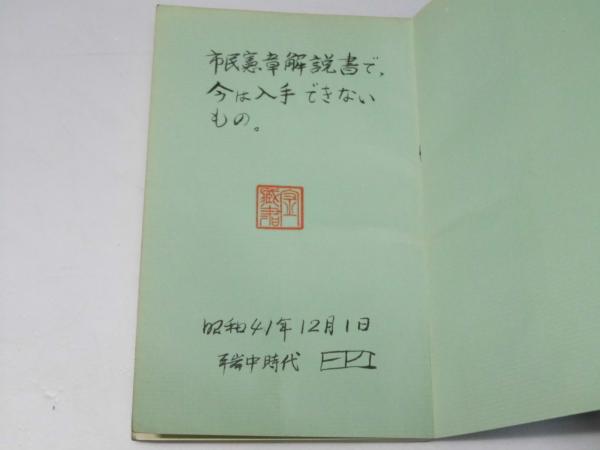 市民憲章解説書で,
今は入手できない
もの。
蔵書
昭和41年12月1日
中時代